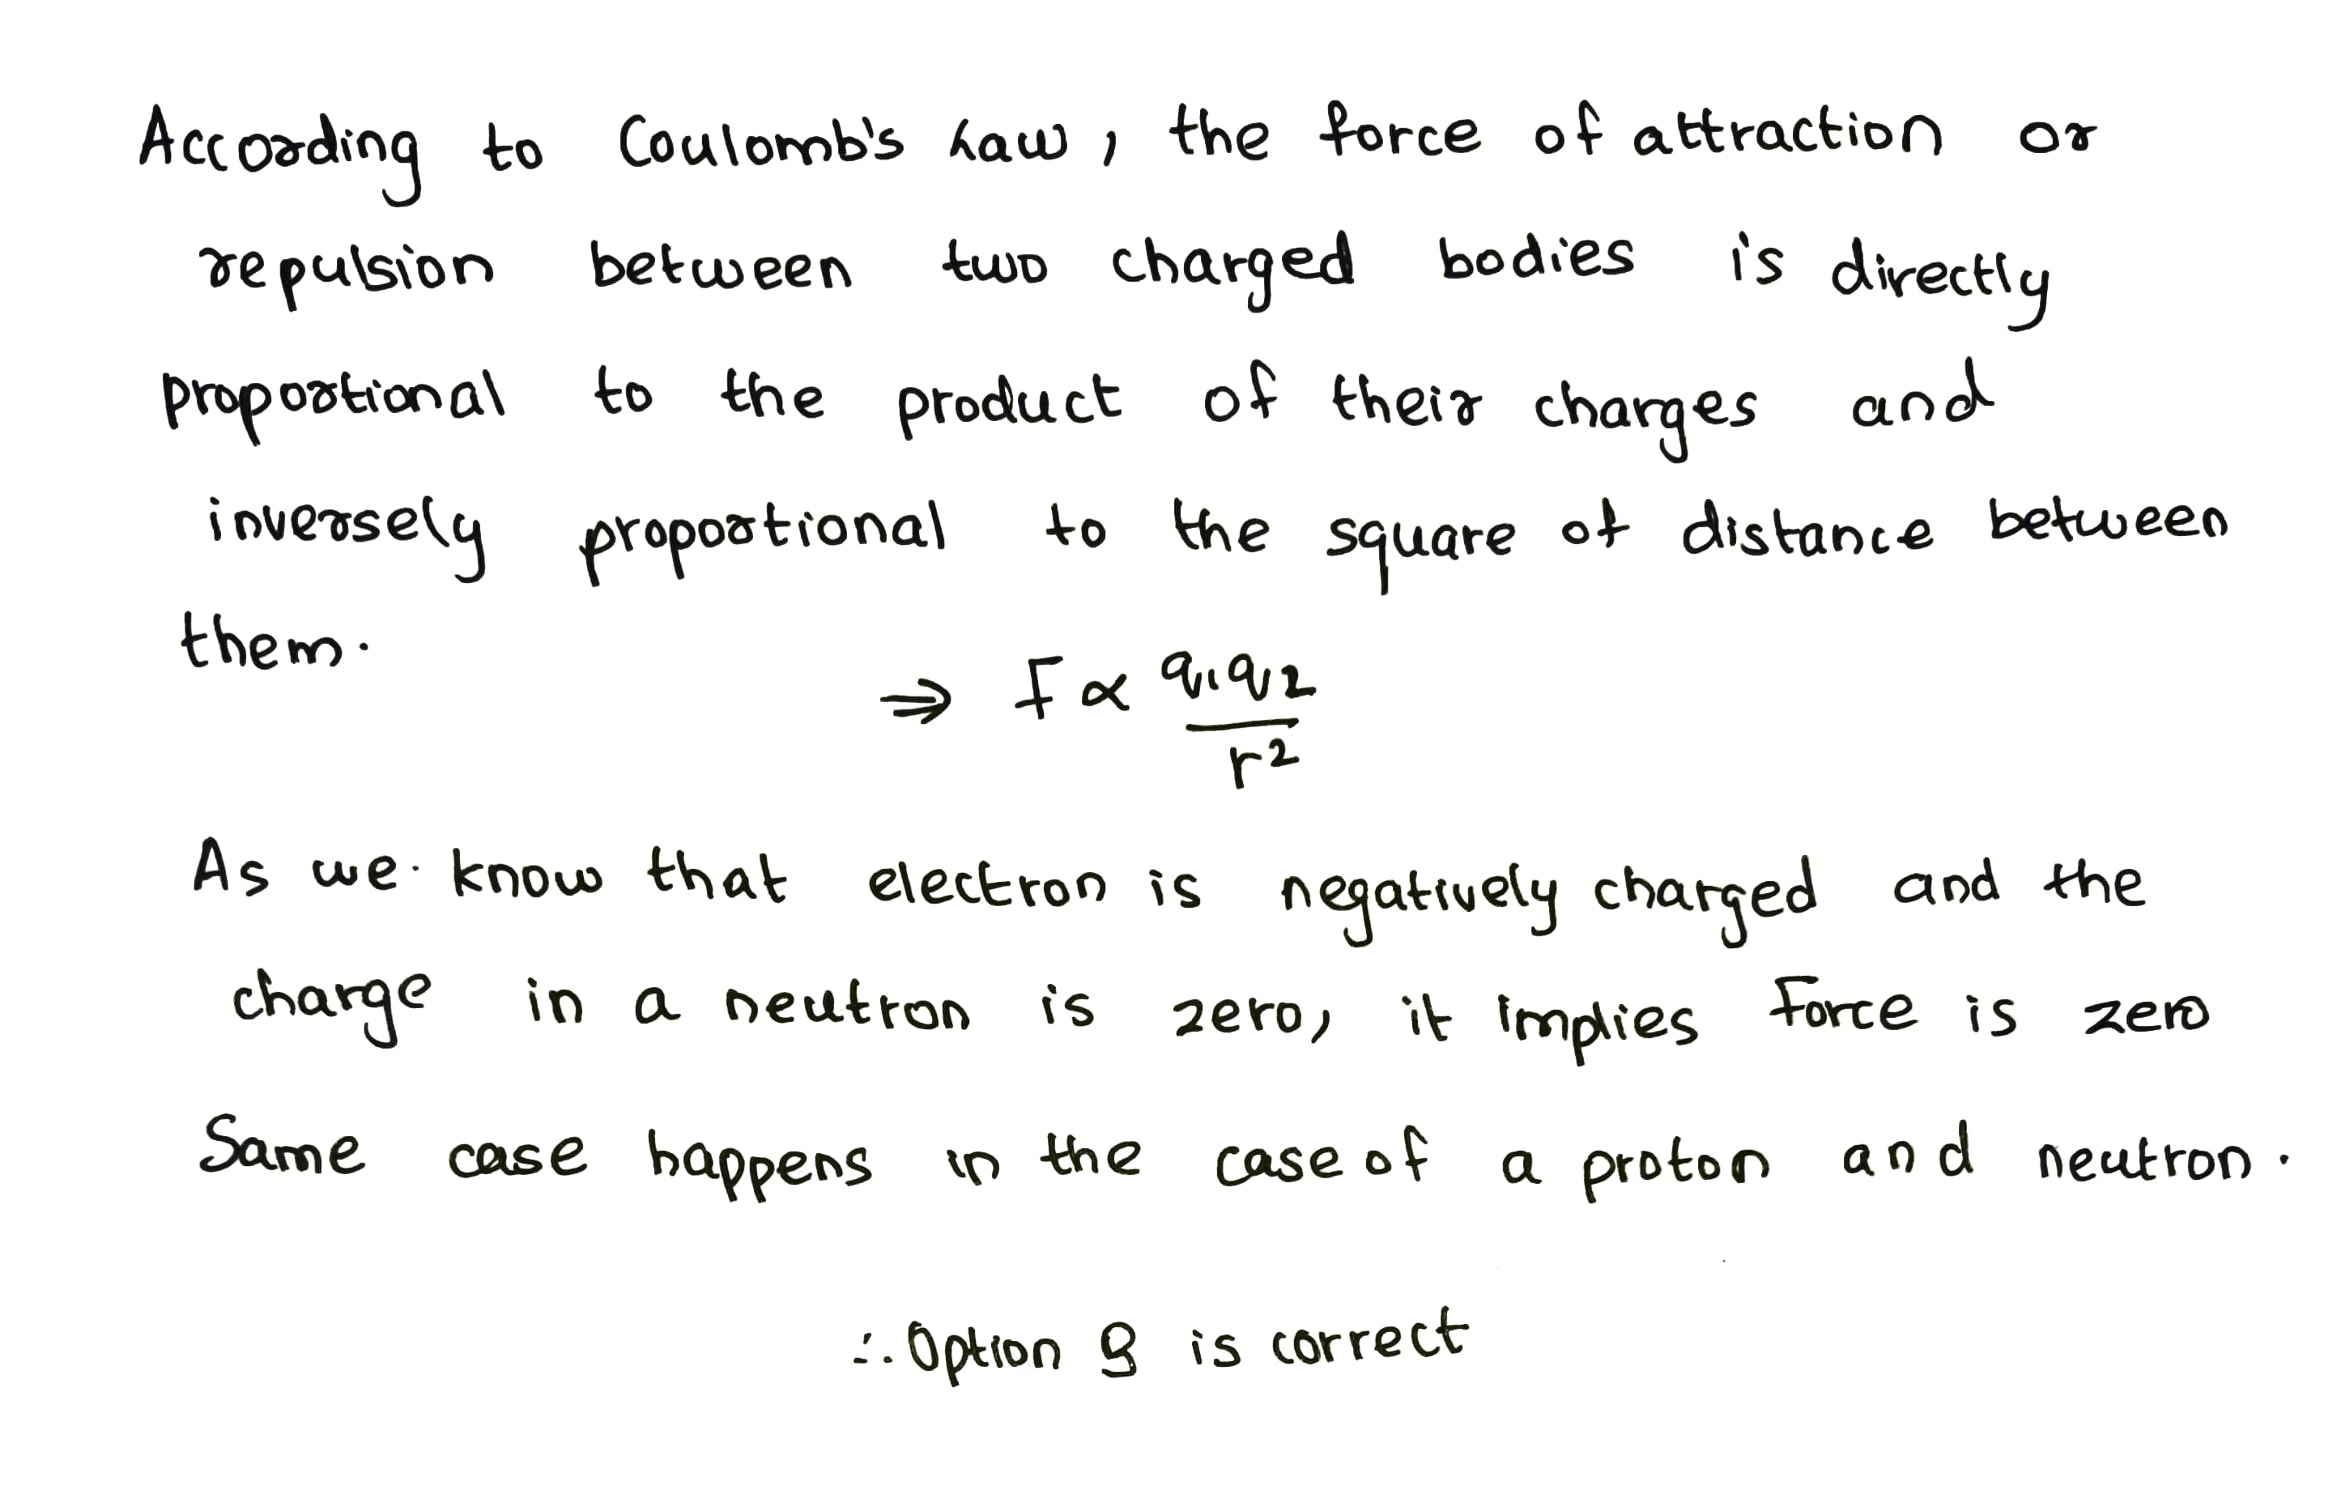 According to Coulomb's Law, the force of attraction or
repulsion between two charged bodies is directly
proportional to the product of their charges and
inversely proportional to the square of distance between
them.
⇒ F ∝ q₁q₂/r²
As we know that electron is negatively charged and the
charge in a neutron is zero, it implies Force is zero
Same case happens in the case of a proton and neutron.
∴ Option B is correct